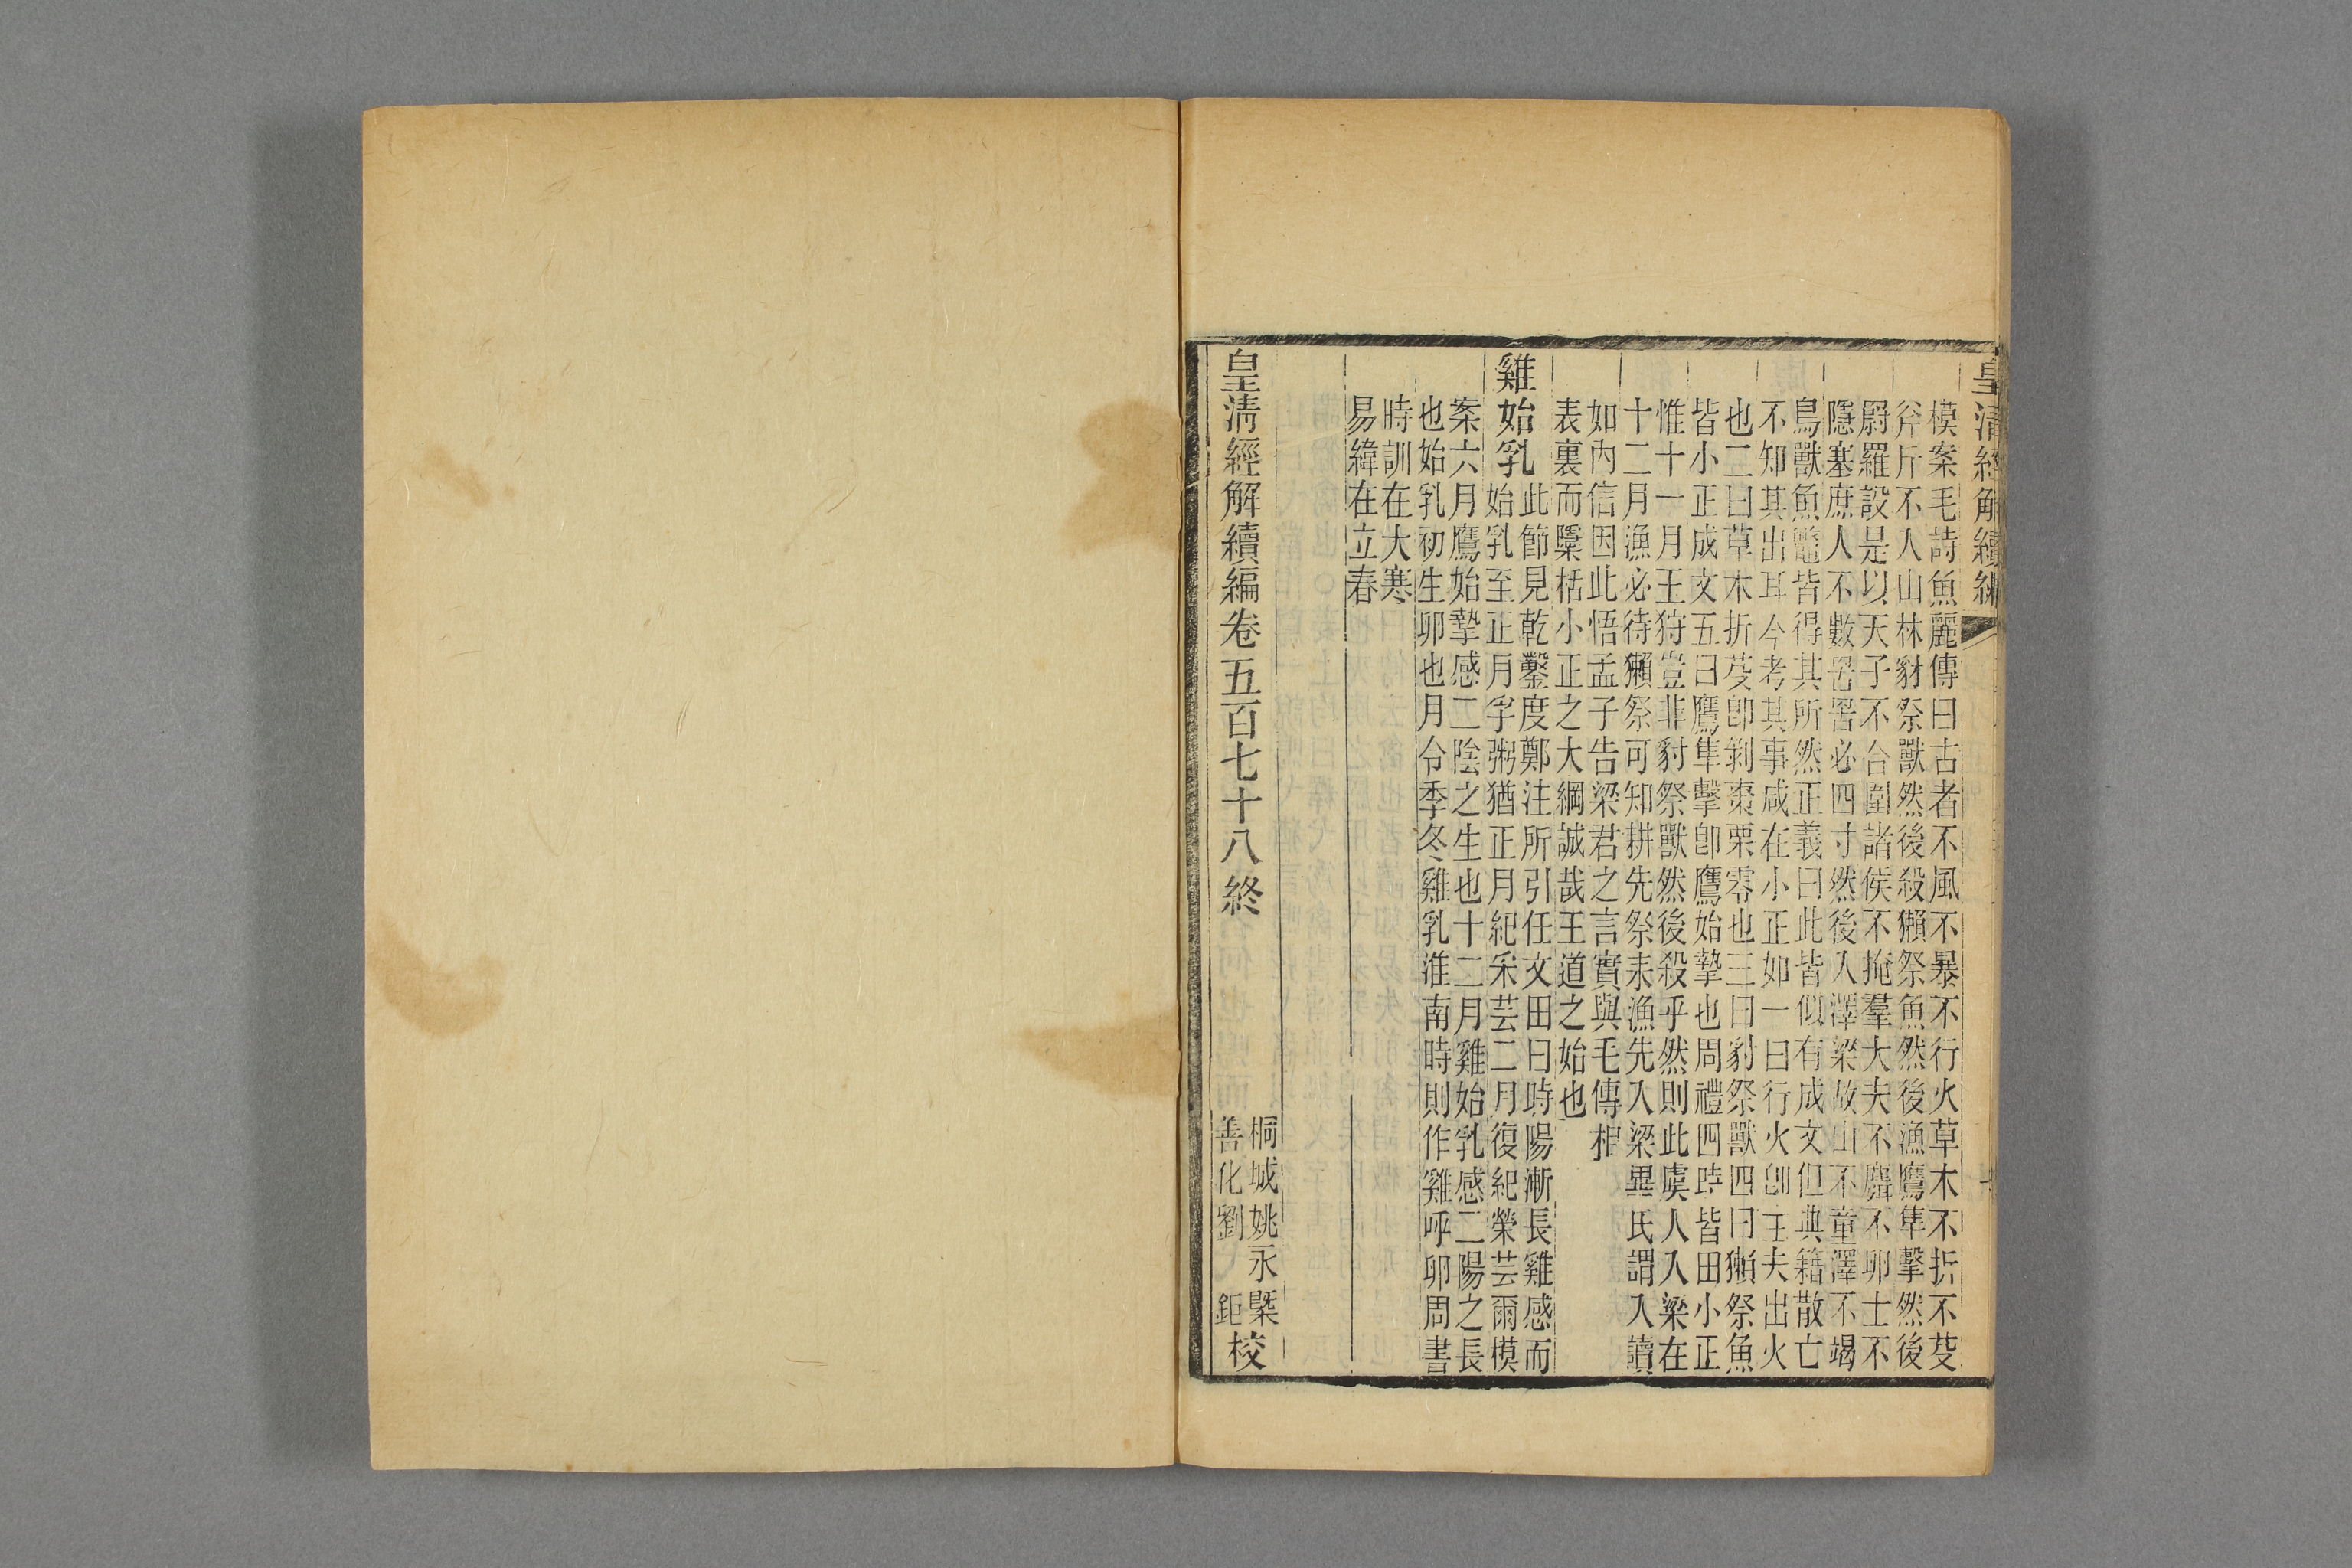 皇清經解續編
模案毛詩魚麗傳曰古者不風不暴不行火草木不折不芟
斧斤不入山林豺祭獸然後殺獺祭魚然後漁鷹隼擊然後
罻羅設是以天子不合圍諸侯不掩羣大夫不麛不卵士不
隱塞庶人不數罟罟必四寸然後入澤梁故山不童澤不竭
鳥獸魚鼈皆得其所然正義曰此皆似有成文但典籍散亡
不知其出耳今考其事咸在小正如一曰行火卽王夫出火
也二曰草木折芟卽剝棗栗零也三曰豺祭獸四曰獺祭魚
皆小正成文五曰鷹隼擊卽鷹始摯也周禮四時皆田小正
惟十一月王狩豈非豺祭獸然後殺乎然則此虞人入梁在
十二月漁必待獺祭可知耕先祭耒漁先入梁異氏謂入讀
如內信因此悟孟子告梁君之言實與毛傳相
表裏而檃栝小正之大綱誠哉王道之始也
雞始乳
此節見乾鑿度鄭注所引任文田曰時陽漸長雞感而
始乳至正月孚粥猶正月紀采芸二月復紀榮芸爾模
案六月鷹始摯感二陰之生也十二月雞始乳感二陽之長
也始乳初生卵也月令季冬雞乳淮南時則作雞呼卵周書
時訓在大寒
易緯在立春
皇清經解續編卷五百七十八終
桐城姚永㮣
善化劉鉅
校